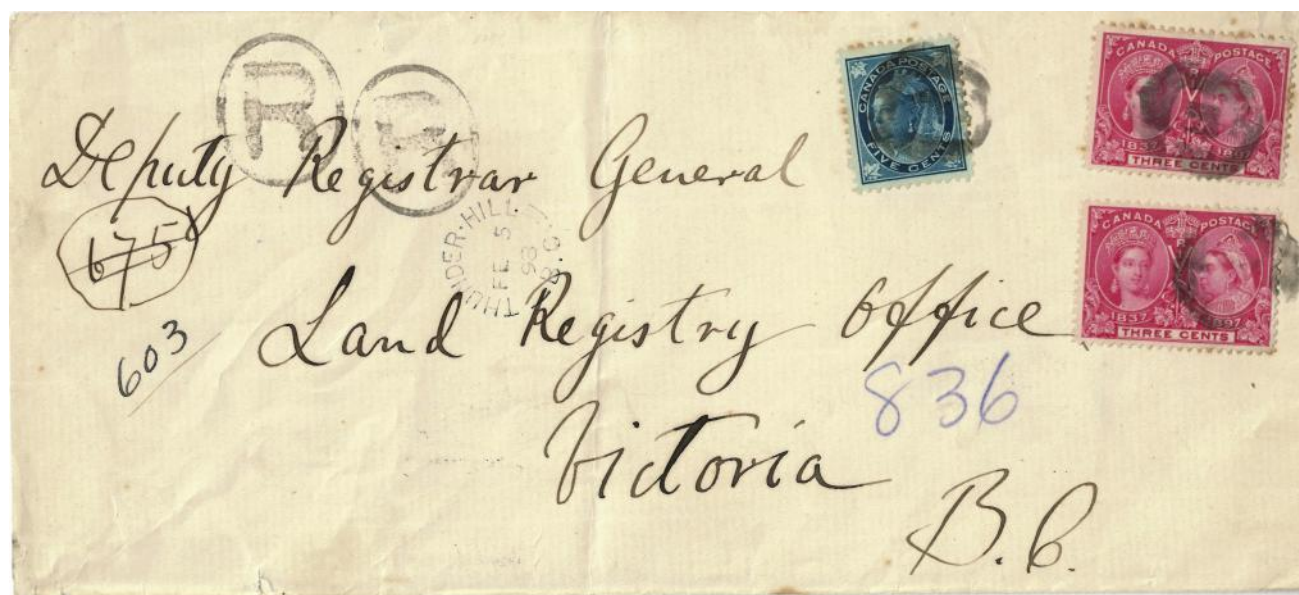 R R
CANADA POSTAGE
FIVE CENTS
CANADA POSTAGE
1837 1897
THREE CENTS
CANADA POSTAGE
1837 1897
THREE CENTS
Deputy Registrar General
675
THUNDER-HILL B.C.
FE 5
98
603
Land Registry Office
836
Victoria
B.C.